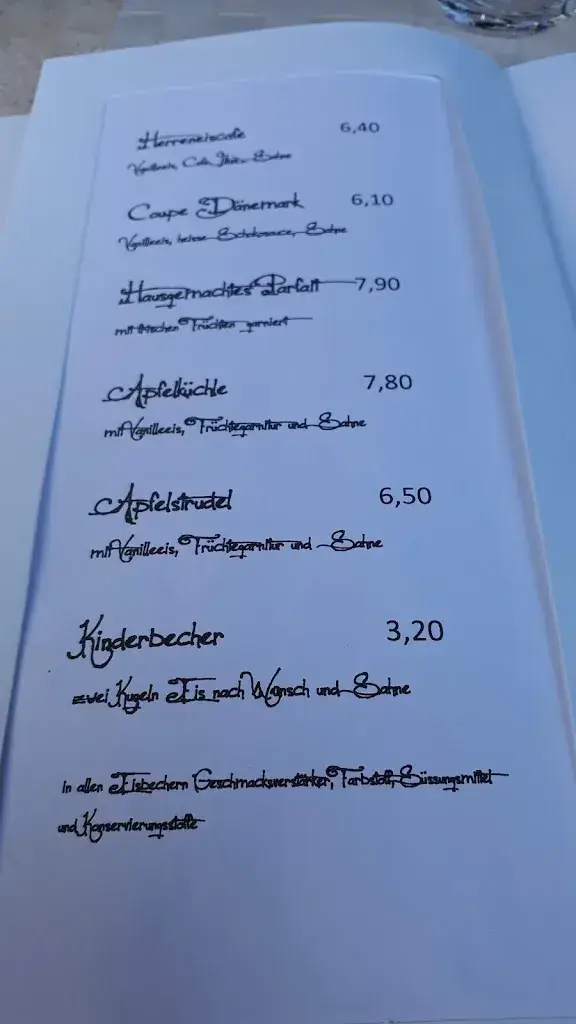 Herreneiscafe 6,40
Vanilleeis, Sahne
Coupe Dänemark 6,10
Vanilleeis, heisse Schokosauce, Sahne
Hausgemachtes Parfait 7,90
mit frischen Früchten garniert
Apfelküchle 7,80
mit Vanilleeis, Früchtegarnitur und Sahne
Apfelstrudel 6,50
mit Vanilleeis, Früchtegarnitur und Sahne
Kinderbecher 3,20
zwei Kugeln Eis nach Wunsch und Sahne
In allen Eisbechern Geschmacksverstärker, Farbstoff, Süssungsmittel
und Konservierungsstoffe